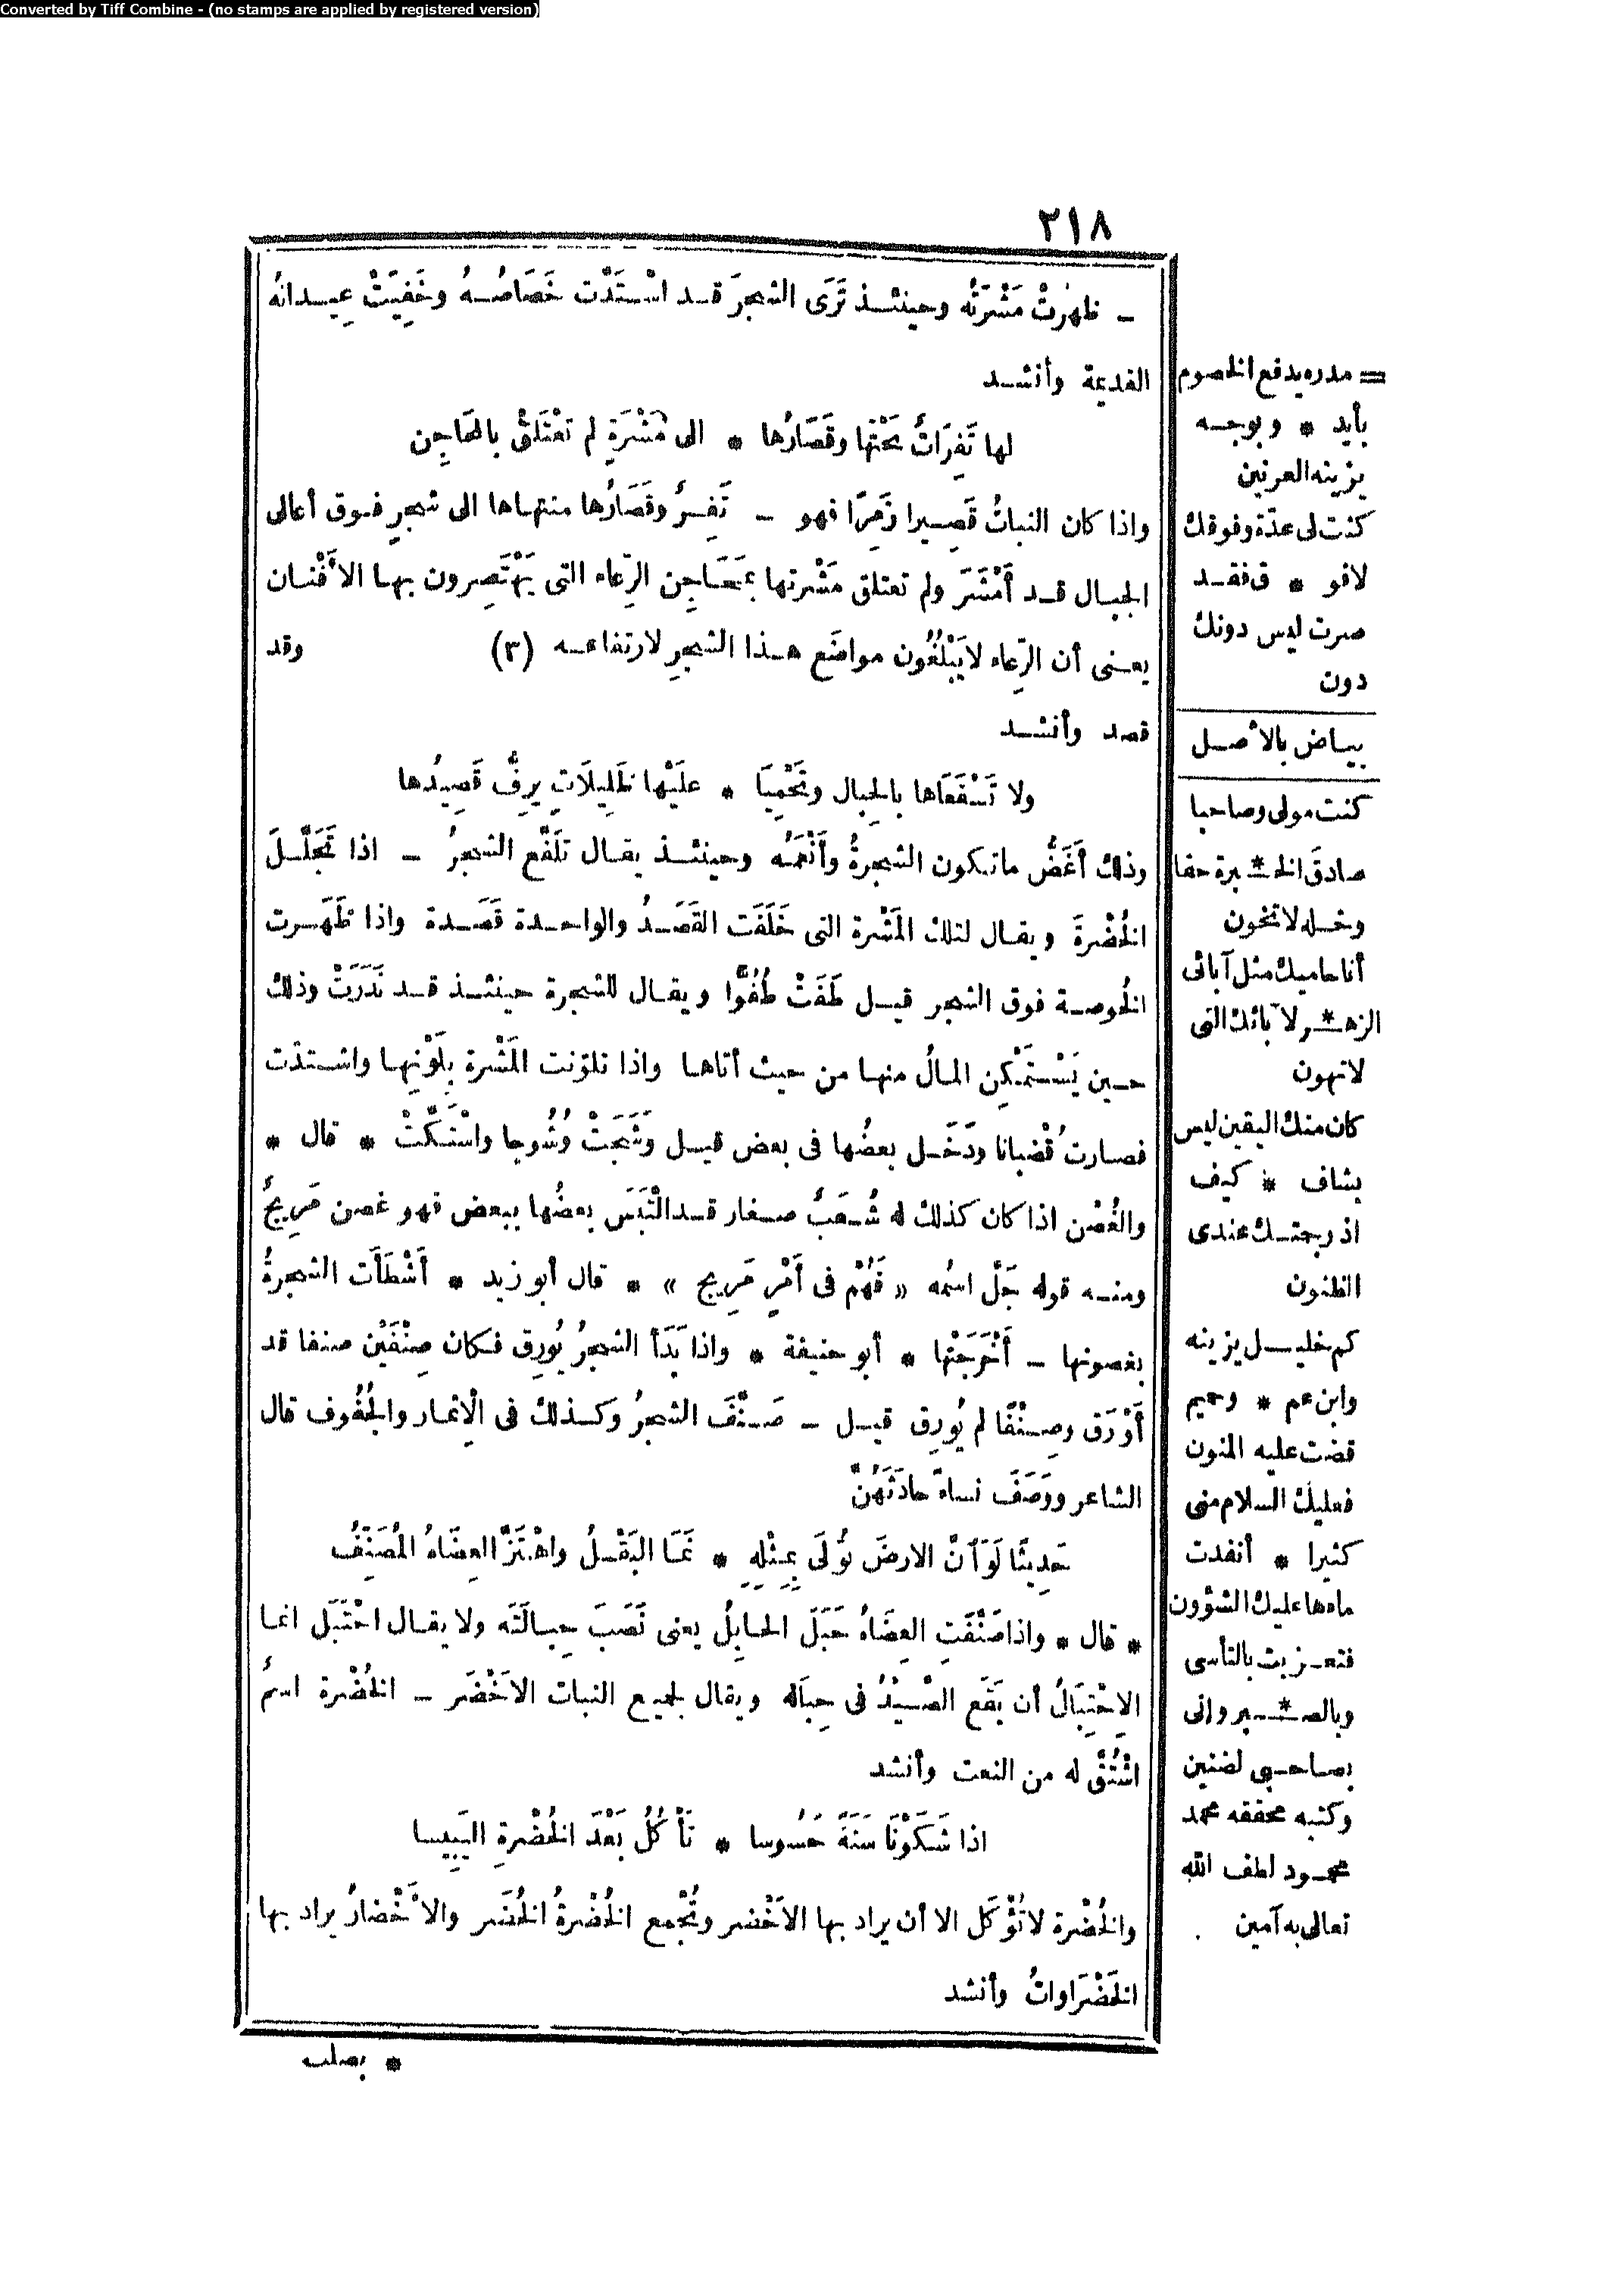 Converted by Tiff Combine - (no stamps are applied by registered version)
٢١٨
ـ ظهرتْ مَشْرَتُه وحينئذ تَرَى الشجرَ قد اسْتَدَّت خَصَاصُهُ وخَفِيَتْ عِيدانُه
القديمة وأنشد
لها تَفِرَاتٌ تَحْتَها وقَصَارُها * الى مَشْرَةٍ لم تَعْتَلِقْ بالمَحَاجِن
واذا كان النباتُ قَصِيرا زَمِرًا فهو ـ تَفِرٌ وقَصَارُها منتهاها الى شجرٍ فوق أعالى
الجبال قد أَمْشَرَ ولم تعتلق مَشْرتها بمَحَاجِن الرِّعاء التى يَهْتَصِرون بها الأَفْنان
يعنى أن الرِّعاء لايَبْلُغُون مواضَع هذا الشجرِ لارتفاعه (٣) وقد
قصد وأنشد
ولا تَسْفَعَاها بالحِبال وتَحْمِيَا * علَيْها ظَلِيلَاتٍ يرِفُّ قَصِيدُها
وذلك أَغَضُّ ماتكون الشجرةُ وأَنْعَمُه وحينئذ يقال تلَفَّع الشجرُ ـ اذا تَجَلَّلَ
الخُضْرةَ ويقال لتلك المَشْرة التى خَلَفَت القَصَدُ والواحدة قَصَدة واذا ظَهَرت
الخُوصة فوق الشجر قيل طَفَتْ طُفُوًّا ويقال للشجرة حينئذ قد نَدَرَتْ وذلك
حين يَسْتَمْكِن المالُ منها من حيث أتاها واذا تلوّنت المَشْرة بِلَوْنِها واشتدّت
فصارت قُضْبانا ودَخَل بعضُها فى بعض قيل وَشَجَتْ وُشُوجا واسْتَكَّتْ * قال *
والغُصْن اذا كان كذلك له شُعَبٌ صغار قد الْتَبَس بعضُها ببعض فهو غصن مَرِيجٌ
ومنه قوله جَلَّ اسمُه « فَهُمْ فى أَمْرٍ مَرِيجٍ » * قال أبو زيد * أَشْطَأَت الشجرةُ
بغصونها ـ أَخْرَجَتْها * أبو حنيفة * واذا بَدَأ الشجرُ يُورِق فكان صِنْفَيْن صنفا قد
أَوْرَق وصِنْفًا لم يُورِق قيل ـ صَنَّفَ الشجرُ وكذلك فى الإثمار والجُفُوف قال
الشاعر ووَصَفَ نساءً حادَثَهُنَّ
حَدِيثًا لَوَ آنَّ الارضَ تُولَى بِمِثْلِهِ * نَمَا البَقْلُ واهْتَزَّ العِضَاهُ المُصَنِّفُ
* قال * واذا صَنَّفَتِ العِضَاهُ حَبَلَ الحابِلُ يعنى نَصَبَ حِبالَتَه ولا يقال احْتَبَل انما
الاحْتِبَالُ أن يَقَع الصَّيْدُ فى حِبَاله ويقال لجميع النبات الاخْضَر ـ الخُضْرة اسمٌ
اشْتُقَّ له من النعت وأنشد
اذا شَكَوْنَا سَنَةً حَسُوسا * تَأْكُلُ بَعْدَ الخُضْرةِ اليَبِيسا
والخُضْرة لاتُؤْكَل الا أن يراد بها الاخْضر وتُجْمع الخُضْرةُ الخُضَر والأَخْضارُ يراد بها
الخَضْرَاواتُ وأنشد
* بصلب
= مدره يدفع الخصوم
بأيد * وبوجه
يزينه العرنين
كنت لى عدّة وفوقك
لافو * ق فقد
صرت ليس دونك
دون
بياض بالأصل
كنت مولى وصاحبا
صادقَ الخـ * ـبرة حقا
وخله لا تخون
أنا حاميك مثل آبائى
الزهـ * ـر لآبائك التى
لا تهون
كان منك اليقين ليس
بشاف * كيف
اذ رجمتك عندى
الظنون
كم خليل يزينه
وابن عم * وحميم
قضت عليه المنون
فعليك السلام منى
كثيرا * أنفدت
ماءها عليك الشؤون
فتعزيت بالتأسى
وبالصـ * ـبر وإنى
بصاحبى لضنين
وكتبه محققه محمد
محمود لطف الله
تعالى به آمين